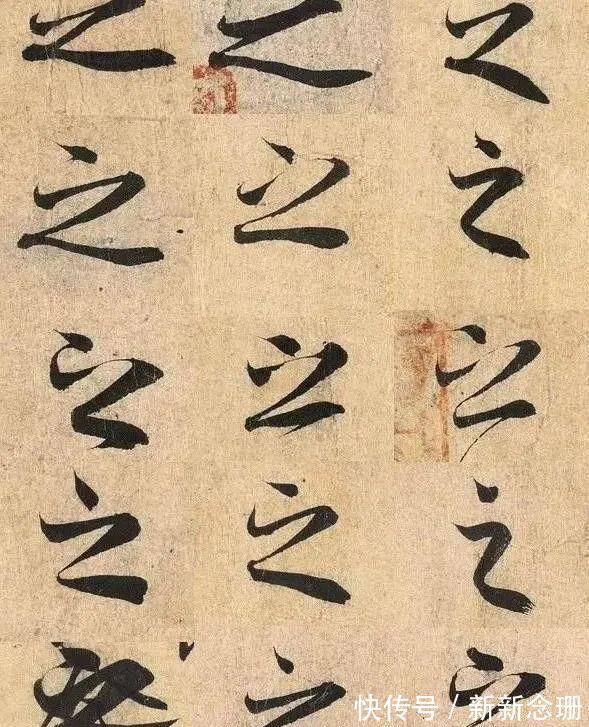 之 之 之
之 之 之
之 之 之
之 之 之
之 之
快传号 / 新新念珊